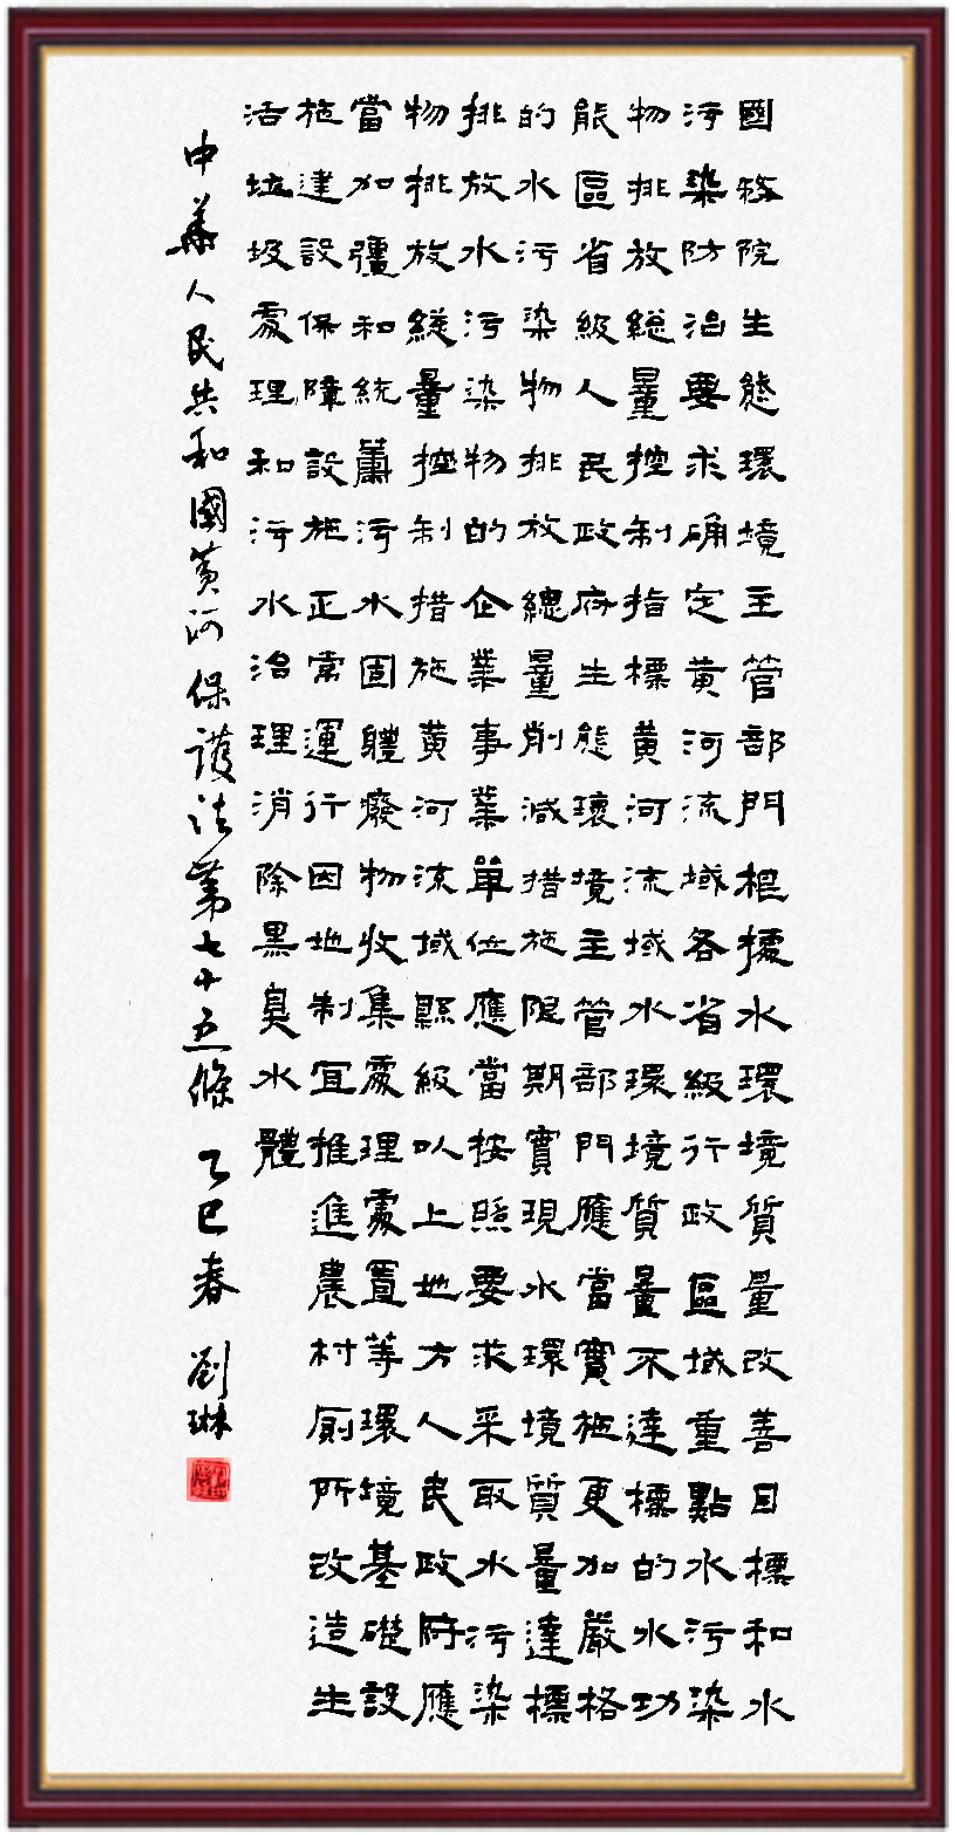 國務院生態環境主管部門根據水環境質量改善目標和水
污染防治要求确定黄河流域各省級行政區域重點水污染
物排放總量控制指標黄河流域水環境質量不達標的水功
能區省級人民政府生態環境主管部門應當實施更加嚴格
的水污染物排放總量削減措施限期實現水環境質量達標
排放水污染物的企業事業單位應當按照要求采取水污染
物排放總量控制措施黄河流域縣級以上地方人民政府應
當加彊和統籌污水固體廢物收集處理處置等環境基礎設
施建設保障設施正常運行因地制宜推進農村厕所改造生
活垃圾處理和污水治理消除黑臭水體
中華人民共和國黄河保護法第七十五條 乙巳春 劉琳